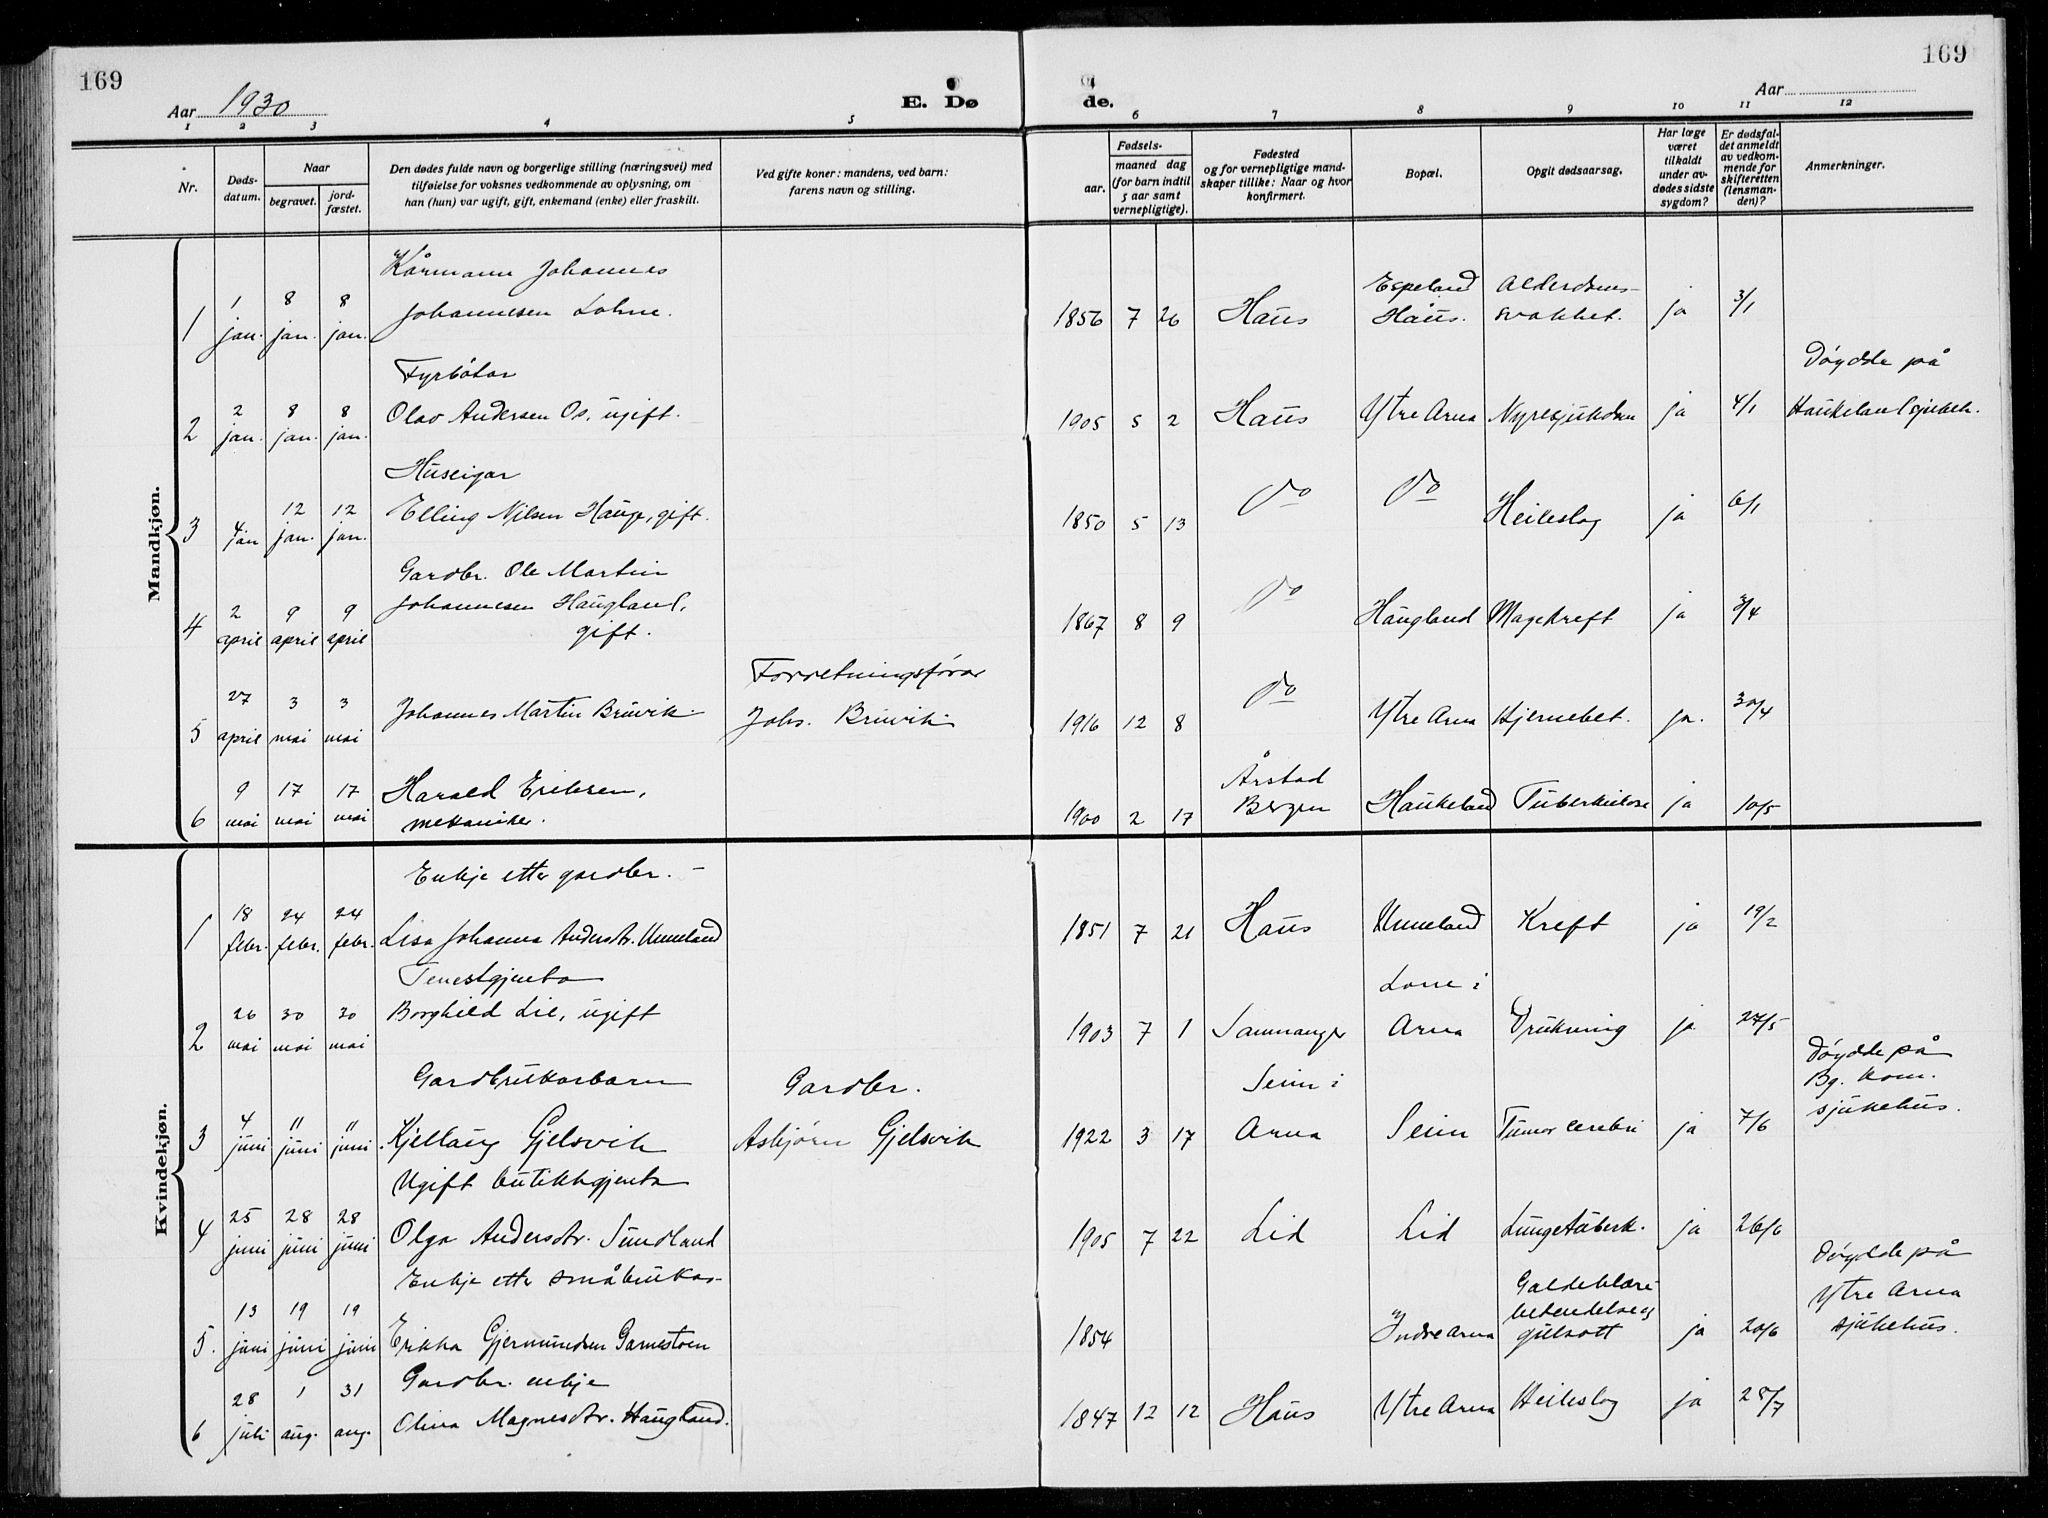 169
169
Aar 1930
E. Dø
de.
Aar
1 2 3 4 5 6 7 8 9 10 11 12
Nr.
Døds-
datum.
Naar
begravet.
jord-
fæstet.
Den dødes fulde navn og borgerlige stilling (næringsvei) med
tilføielse for voksnes vedkommende av oplysning, om
han (hun) var ugift, gift, enkemand (enke) eller fraskilt.
Ved gifte koner: mandens, ved barn:
farens navn og stilling.
Fødsels-
aar.
maaned dag
(for barn indtil
5 aar samt
vernepligtige).
Fødested
og for vernepligtige mand-
skaper tillike: Naar og hvor
konfirmert.
Bopæl.
Opgit dødsaarsag.
Har læge
været
tilkaldt
under av-
dødes sidste
sygdom?
Er dødsfal-
det anmeldt
av vedkom-
mende for
skifteretten
(lensman-
den)?
Anmerkninger.
Mandkjøn.
Kårmann Johannes
Espeland Alderdoms-
1 1 jan. 8 jan. 8 jan. Johannesen Lohne. 1856 7 26 Haus Haus. svakhet. ja 3/1
Fyrbøtar
Døydde på
2 2 jan. 8 jan. 8 jan. Olav Andersen Os, ugift. 1905 5 2 Haus Ytre Arna Nyresjukdom ja 4/1 Haukeland sjukeh.
Huseigar
3 4 jan 12 jan. 12 jan. Elling Nilsen Hauge, gift. 1850 5 13 Do Do Heileslag ja 6/1
Gardbr. Ole Martin
4 2 april 9 april 9 april Johannesen Haugland, 1867 8 9 Do Haugland Magekreft ja 3/4
gift.
Forretningsførar
5 27 april 3 mai 3 mai Johannes Martin Bruvik. Johs. Bruvik. 1916 12 8 Do Ytre Arna Hjernebet. ja. 30/4
Årstad
6 9 mai 17 mai 17 mai Harald Eriksen, 1900 2 17 Bergen Haukeland Tuberkulose ja 10/5
mekaniker.
Kvindekjøn.
Enkje etter gardbr. -
1 18 febr. 24 febr. 24 febr. Lisa Johanna Andersdtr. Unneland 1851 7 21 Haus Unneland Kreft ja 19/2
Tenestgjenta
Lone i
2 26 mai 30 mai 30 mai Borghild Lie, ugift 1903 7 1 Samnanger Arna Drukning ja 27/5
Gardbrukarbarn Gardbr.
Seim i
Døydde på
Bg. kom.
sjukehus.
3 4 juni 11 juni 11 juni. Kjellaug Gjelsvik Asbjørn Gjelsvik 1922 3 17 Arna Seim Tumor cerebri ja 7/6
Ugift butikkgjenta
4 25 juni 28 juni 28 juni Olga Andersdtr. Sundland 1905 7 22 Lid Lid Lungetuberk. ja 26/6
Enkje etter småbrukar
Galdeblære-
betendelse og
Døydde på
Ytre Arna
sjukehus.
5. 13 juni 19 juni 19 juni Erikka Gjermundsen Garnestoen 1854 Indre Arna gulsott ja 20/6
Gardbr. enkje
6 28 juli 1 aug. 31 aug. Olina Magnesdtr. Haugland. 1847 12 12 Haus Ytre Arna Heileslag ja 28/7